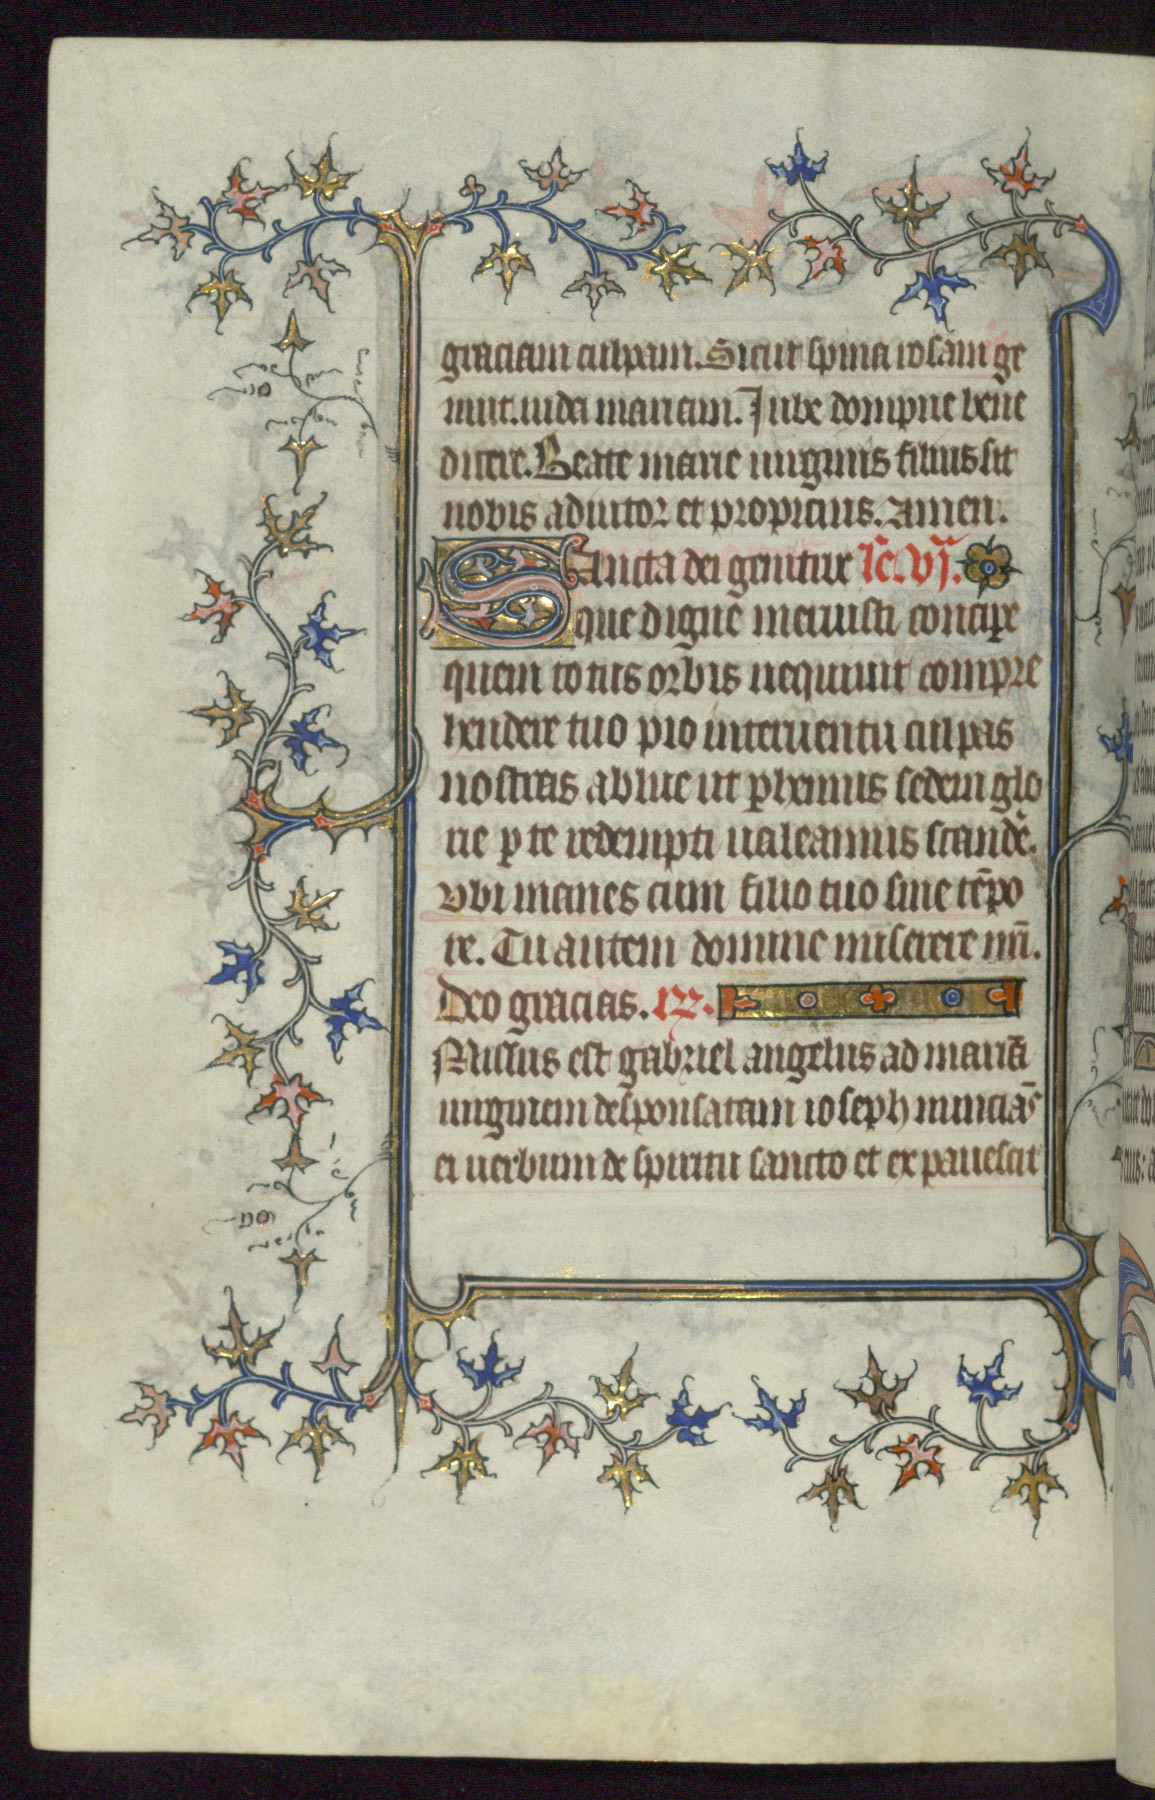 graciam culpam. Sicut spina rosam ge
nuit. iuda mariam. Iube dompne bene
dicere. Beate marie uirginis filius sit
nobis adiutor et propicius. Amen.
Sancta dei genitrix lc̄. vj.
que digne meruisti concipe
quem totus orbis nequiuit compre
hendere tuo pio interuentu culpas
nostras ablue ut phennis sedem glo
rie p te redempti ualeamus scandē.
vbi manes cum filio tuo sine tēpo
re. Tu autem domine miserere nr̄i.
Deo gracias.
Missus est gabriel angelus ad mariā
uirginem desponsatam ioseph nunciās
ei uerbum de spiritu sancto et expauescit